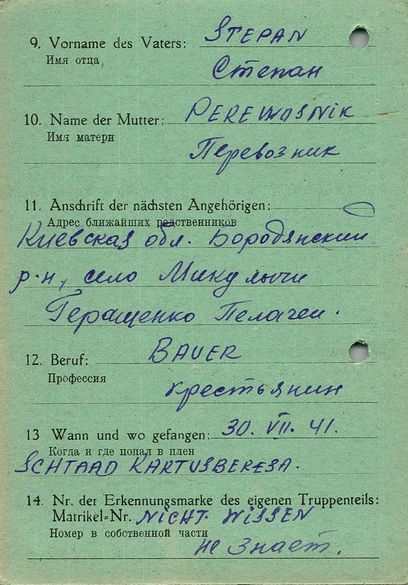 9. Vorname des Vaters: STEPAN
Имя отца
Степан
10. Name der Mutter: PEREWOSNIK
Имя матери
Перевозник
11. Anschrift der nächsten Angehörigen:
Адрес ближайших родственников
Киевская обл. Бородянский
р-н, село Микулычи
Геращенко Пелагеи.
12. Beruf: BAUER
Профессия
крестьянин
13 Wann und wo gefangen: 30. VII. 41.
Когда и где попал в плен
SCHTAAD KARTUSBERESA.
14. Nr. der Erkennungsmarke des eigenen Truppenteils:
Matrikel-Nr. NICHT WISSEN
Номер в собственной части
не знает.